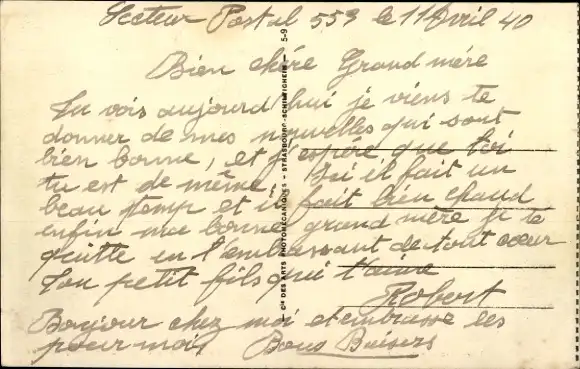 Secteur Postal 553 le 11 Avril 40
Bien chére Grand mére
Tu vois aujourd'hui je viens te
donner de mes nouvelles qui sont
bien bonne, et j'espére que toi
tu est de même. Ici il fait un
beau temp et il fait bien chaud
enfin ma bonne grand mére je te
quitte en t'embrassant de tout cœur
Ton petit fils qui t'aime
Robert
Bonjour chez moi et embrasse les
pour moi, Bons Baisers
Cie DES ARTS PHOTOMÉCANIQUES - STRASBOURG-SCHILTIGHEIM - 5-9